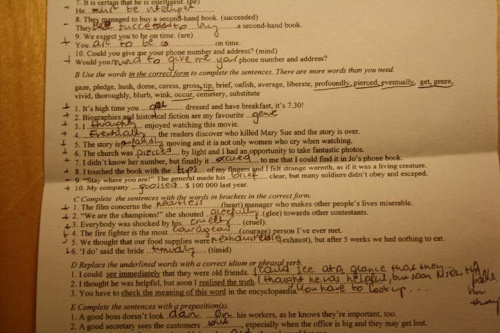 7. It is certain that he is intelligent. (pe)
He must be intelligent
8. They managed to buy a second-hand book. (succeeded)
They succeeded to buy a second-hand book.
9. We expect you to be on time. (are)
You are to be on time.
10. Could you give me your phone number and address? (mind)
Would you mind to give me your phone number and address?
B Use the words in the correct form to complete the sentences. There are more words than you need.
gaze, pledge, hush, dome, caress, gross, tip, brief, oafish, average, liberate, profoundly, pierced, eventually, get, genre,
vivid, thoroughly, blurb, wink, occur, cemetery, substitute
1. It's high time you dressed and have breakfast, it's 7.30!
2. Biographies and historical fiction are my favourite genre
3. I thoroughly enjoyed watching this movie.
4. Eventually the readers discover who killed Mary Sue and the story is over.
5. The story is moving and it is not only women who cry when watching.
6. The church was pierced by light and I had an opportunity to take fantastic photos.
7. I didn't know her number, but finally it occured to me that I could find it in Jo's phone book.
8. I touched the book with the tips of my fingers and I felt strange warmth, as if it was a living creature.
9. "Stay where you are!" The general made his brief clear, but many soldiers didn't obey and escaped.
10. My company grossed $ 100 000 last year.
C Complete the sentences with the words in brackets in the correct form.
1. The film concerns the heartless (heart) manager who makes other people's lives miserable.
2. "We are the champions!" she shouted gleefully (glee) towards other contestants.
3. Everybody was shocked by his cruelty (cruel).
4. The fire fighter is the most courageous (courage) person I've ever met.
5. We thought that our food supplies were (exhaust), but after 5 weeks we had nothing to eat.
6. 'I do' said the bride timidly (timid).
D Replace the underlined words with a correct idiom or phrasal verb.
1. I could see immediately that they were old friends. I could see at a glance that they
2. I thought he was helpful, but soon I realised the truth I thought he was helpful but soon
3. You have to check the meaning of this word in the encyclopaedia. You have to look up...
E Complete the sentences with a preposition(s).
1. A good boss doesn't look down on his workers, as he knows they're important, too.
2. A good secretary sees the customers out, especially when the office is big and they may get lost.